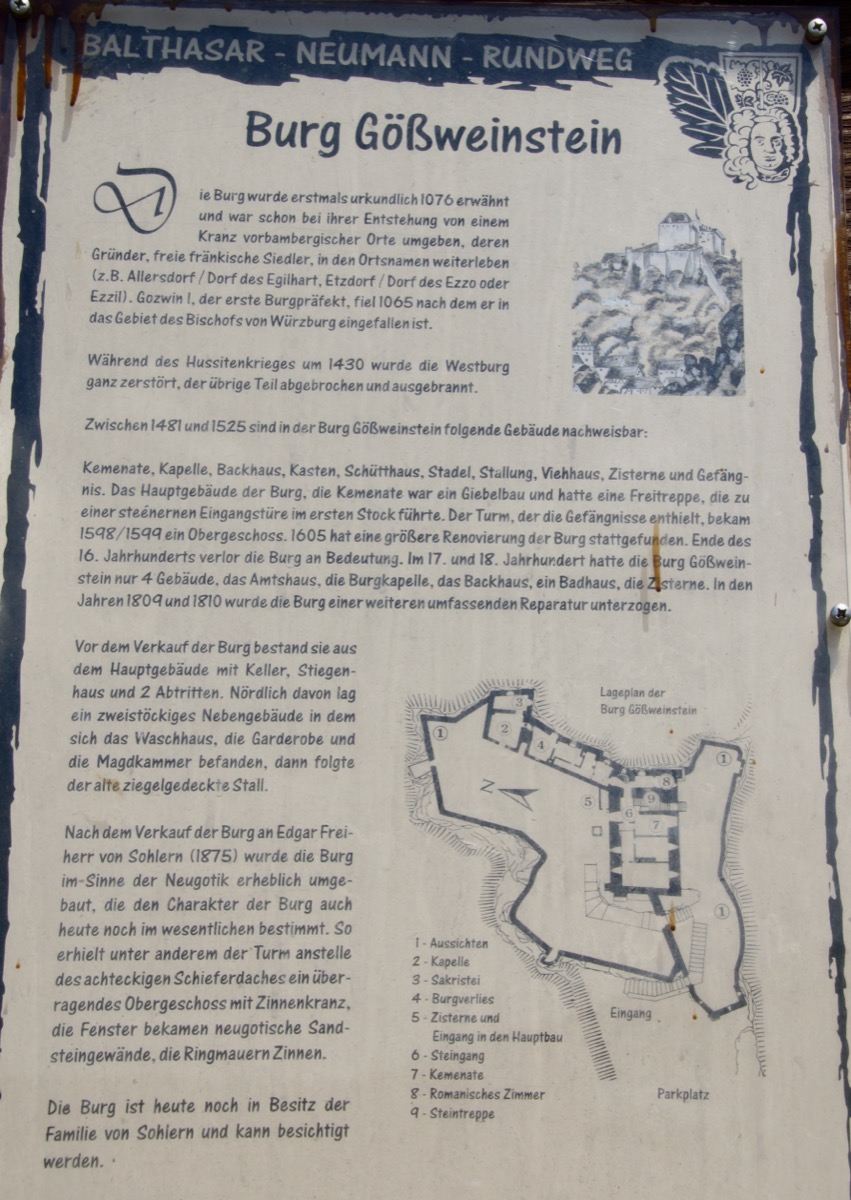 BALTHASAR - NEUMANN - RUNDWEG
Burg Gößweinstein
Die Burg wurde erstmals urkundlich 1076 erwähnt
und war schon bei ihrer Entstehung von einem
Kranz vorbambergischer Orte umgeben, deren
Gründer, freie fränkische Siedler, in den Ortsnamen weiterleben
(z.B. Allersdorf / Dorf des Egilhart, Etzdorf / Dorf des Ezzo oder
Ezzil). Gozwin I, der erste Burgpräfekt, fiel 1065 nach dem er in
das Gebiet des Bischofs von Würzburg eingefallen ist.
Während des Hussitenkrieges um 1430 wurde die Westburg
ganz zerstört, der übrige Teil abgebrochen und ausgebrannt.
Zwischen 1481 und 1525 sind in der Burg Gößweinstein folgende Gebäude nachweisbar:
Kemenate, Kapelle, Backhaus, Kasten, Schütthaus, Stadel, Stallung, Viehhaus, Zisterne und Gefäng-
nis. Das Hauptgebäude der Burg, die Kemenate war ein Giebelbau und hatte eine Freitreppe, die zu
einer steénernen Eingangstüre im ersten Stock führte. Der Turm, der die Gefängnisse enthielt, bekam
1598/1599 ein Obergeschoss. 1605 hat eine größere Renovierung der Burg stattgefunden. Ende des
16. Jahrhunderts verlor die Burg an Bedeutung. Im 17. und 18. Jahrhundert hatte die Burg Gößwein-
stein nur 4 Gebäude, das Amtshaus, die Burgkapelle, das Backhaus, ein Badhaus, die Zisterne. In den
Jahren 1809 und 1810 wurde die Burg einer weiteren umfassenden Reparatur unterzogen.
Vor dem Verkauf der Burg bestand sie aus
dem Hauptgebäude mit Keller, Stiegen-
haus und 2 Abtritten. Nördlich davon lag
ein zweistöckiges Nebengebäude in dem
sich das Waschhaus, die Garderobe und
die Magdkammer befanden, dann folgte
der alte ziegelgedeckte Stall.
Nach dem Verkauf der Burg an Edgar Frei-
herr von Sohlern (1875) wurde die Burg
im-Sinne der Neugotik erheblich umge-
baut, die den Charakter der Burg auch
heute noch im wesentlichen bestimmt. So
erhielt unter anderem der Turm anstelle
des achteckigen Schieferdaches ein über-
ragendes Obergeschoss mit Zinnenkranz,
die Fenster bekamen neugotische Sand-
steingewände, die Ringmauern Zinnen.
Die Burg ist heute noch in Besitz der
Familie von Sohlern und kann besichtigt
werden.
Lageplan der
Burg Gößweinstein
3
1
2
4
1
N
8
5
9
6
7
1
1 - Aussichten
2 - Kapelle
3 - Sakristei
4 - Burgverlies
5 - Zisterne und
Eingang in den Hauptbau
6 - Steingang
7 - Kemenate
8 - Romanisches Zimmer
9 - Steintreppe
Eingang
Parkplatz